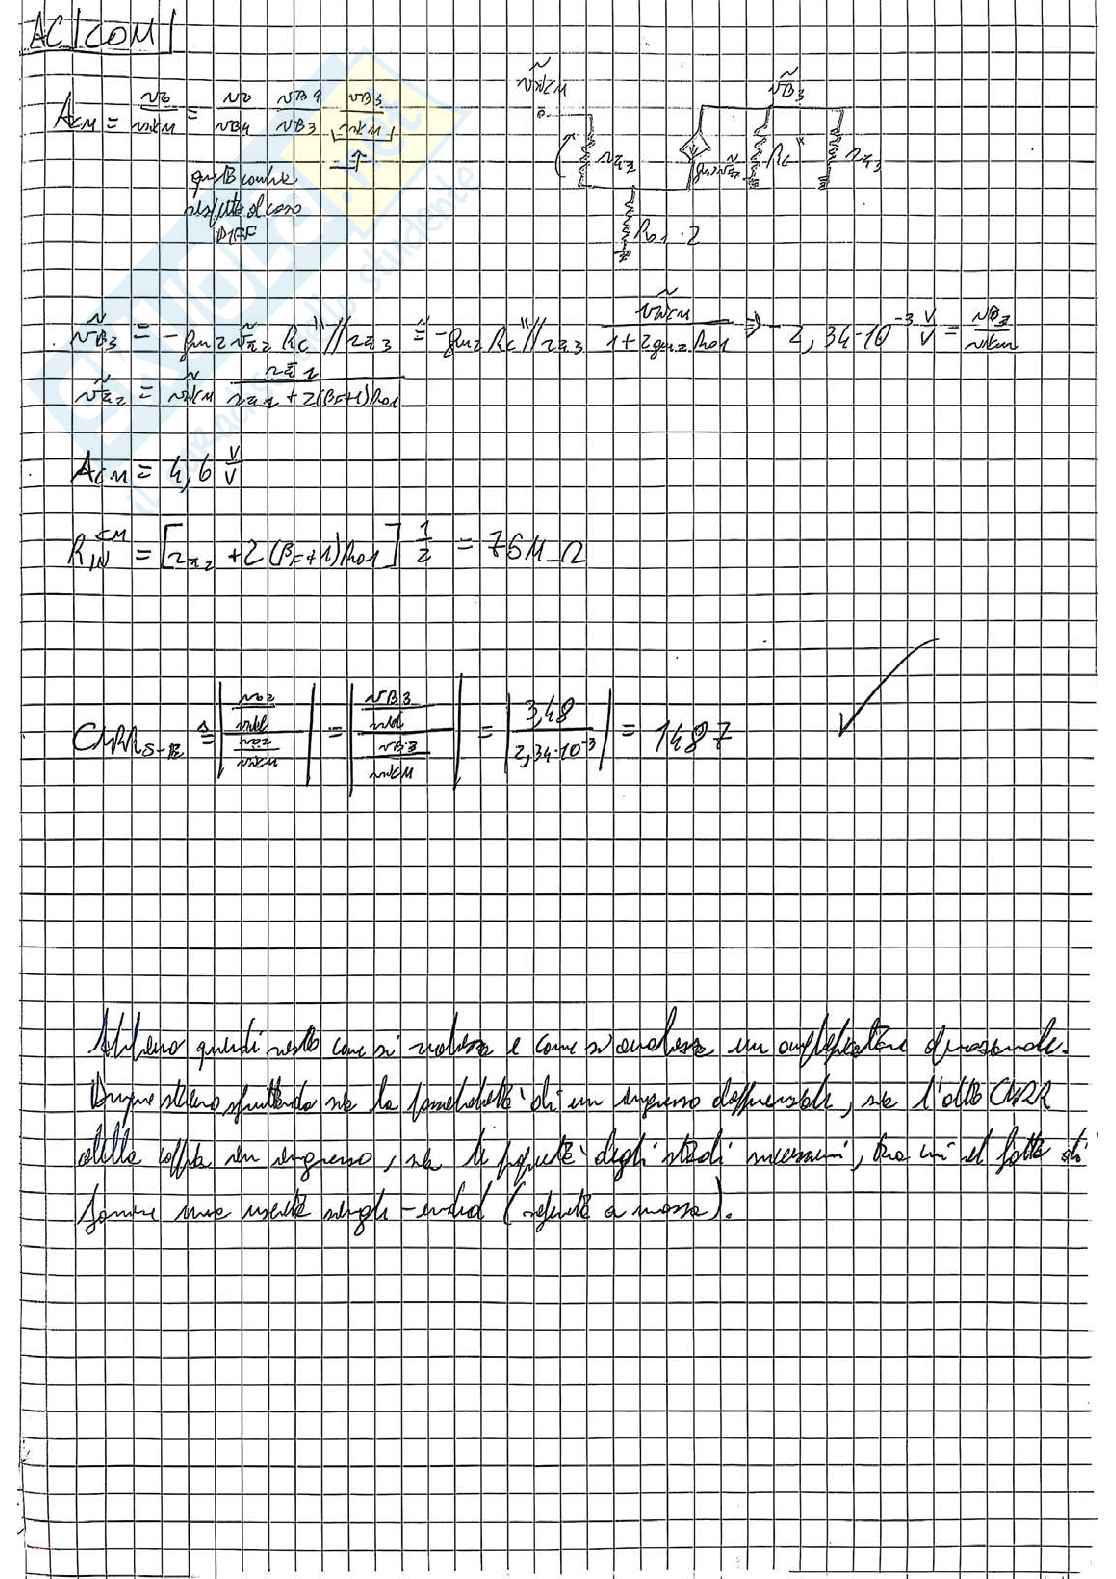 AC COM
A_CM = vo/vicm = vo/vB4 vB4/vB3 vB3/vicm
questo cambia
rispetto al caso
DIFF
vicm
vB3
rπ2
gm2vπ2
Rc"
rπ3
Ro1·2
vB3 = -gm2 vπ2 Rc"//rπ3 = -gm2 Rc"//rπ3 vicm/(1+2gm2Ro1) ⇒ -2,34·10^-3 V/V = vB3/vicm
vπ2 = vicm rπ2/(rπ2 + 2(βF+1)Ro1)
A_CM = 4,6 V/V
R_IN^CM = [rπ2 + 2(βF+1)Ro1] 1/2 = 75MΩ
CMRR ≜ = |(vB3/vid)/(vB3/vicm)| = |3,48/2,34·10^-3| = 1487
Abbiamo quindi visto come si realizza e come si analizza un amplificatore operazionale.
Dunque stiamo sfruttando sia la possibilità di un ingresso differenziale, sia l'alto CMRR
della coppia in ingresso, sia le proprietà degli stadi successivi, tra cui il fatto di
fornire una uscita single-ended (riferita a massa).
SKUOLA.net